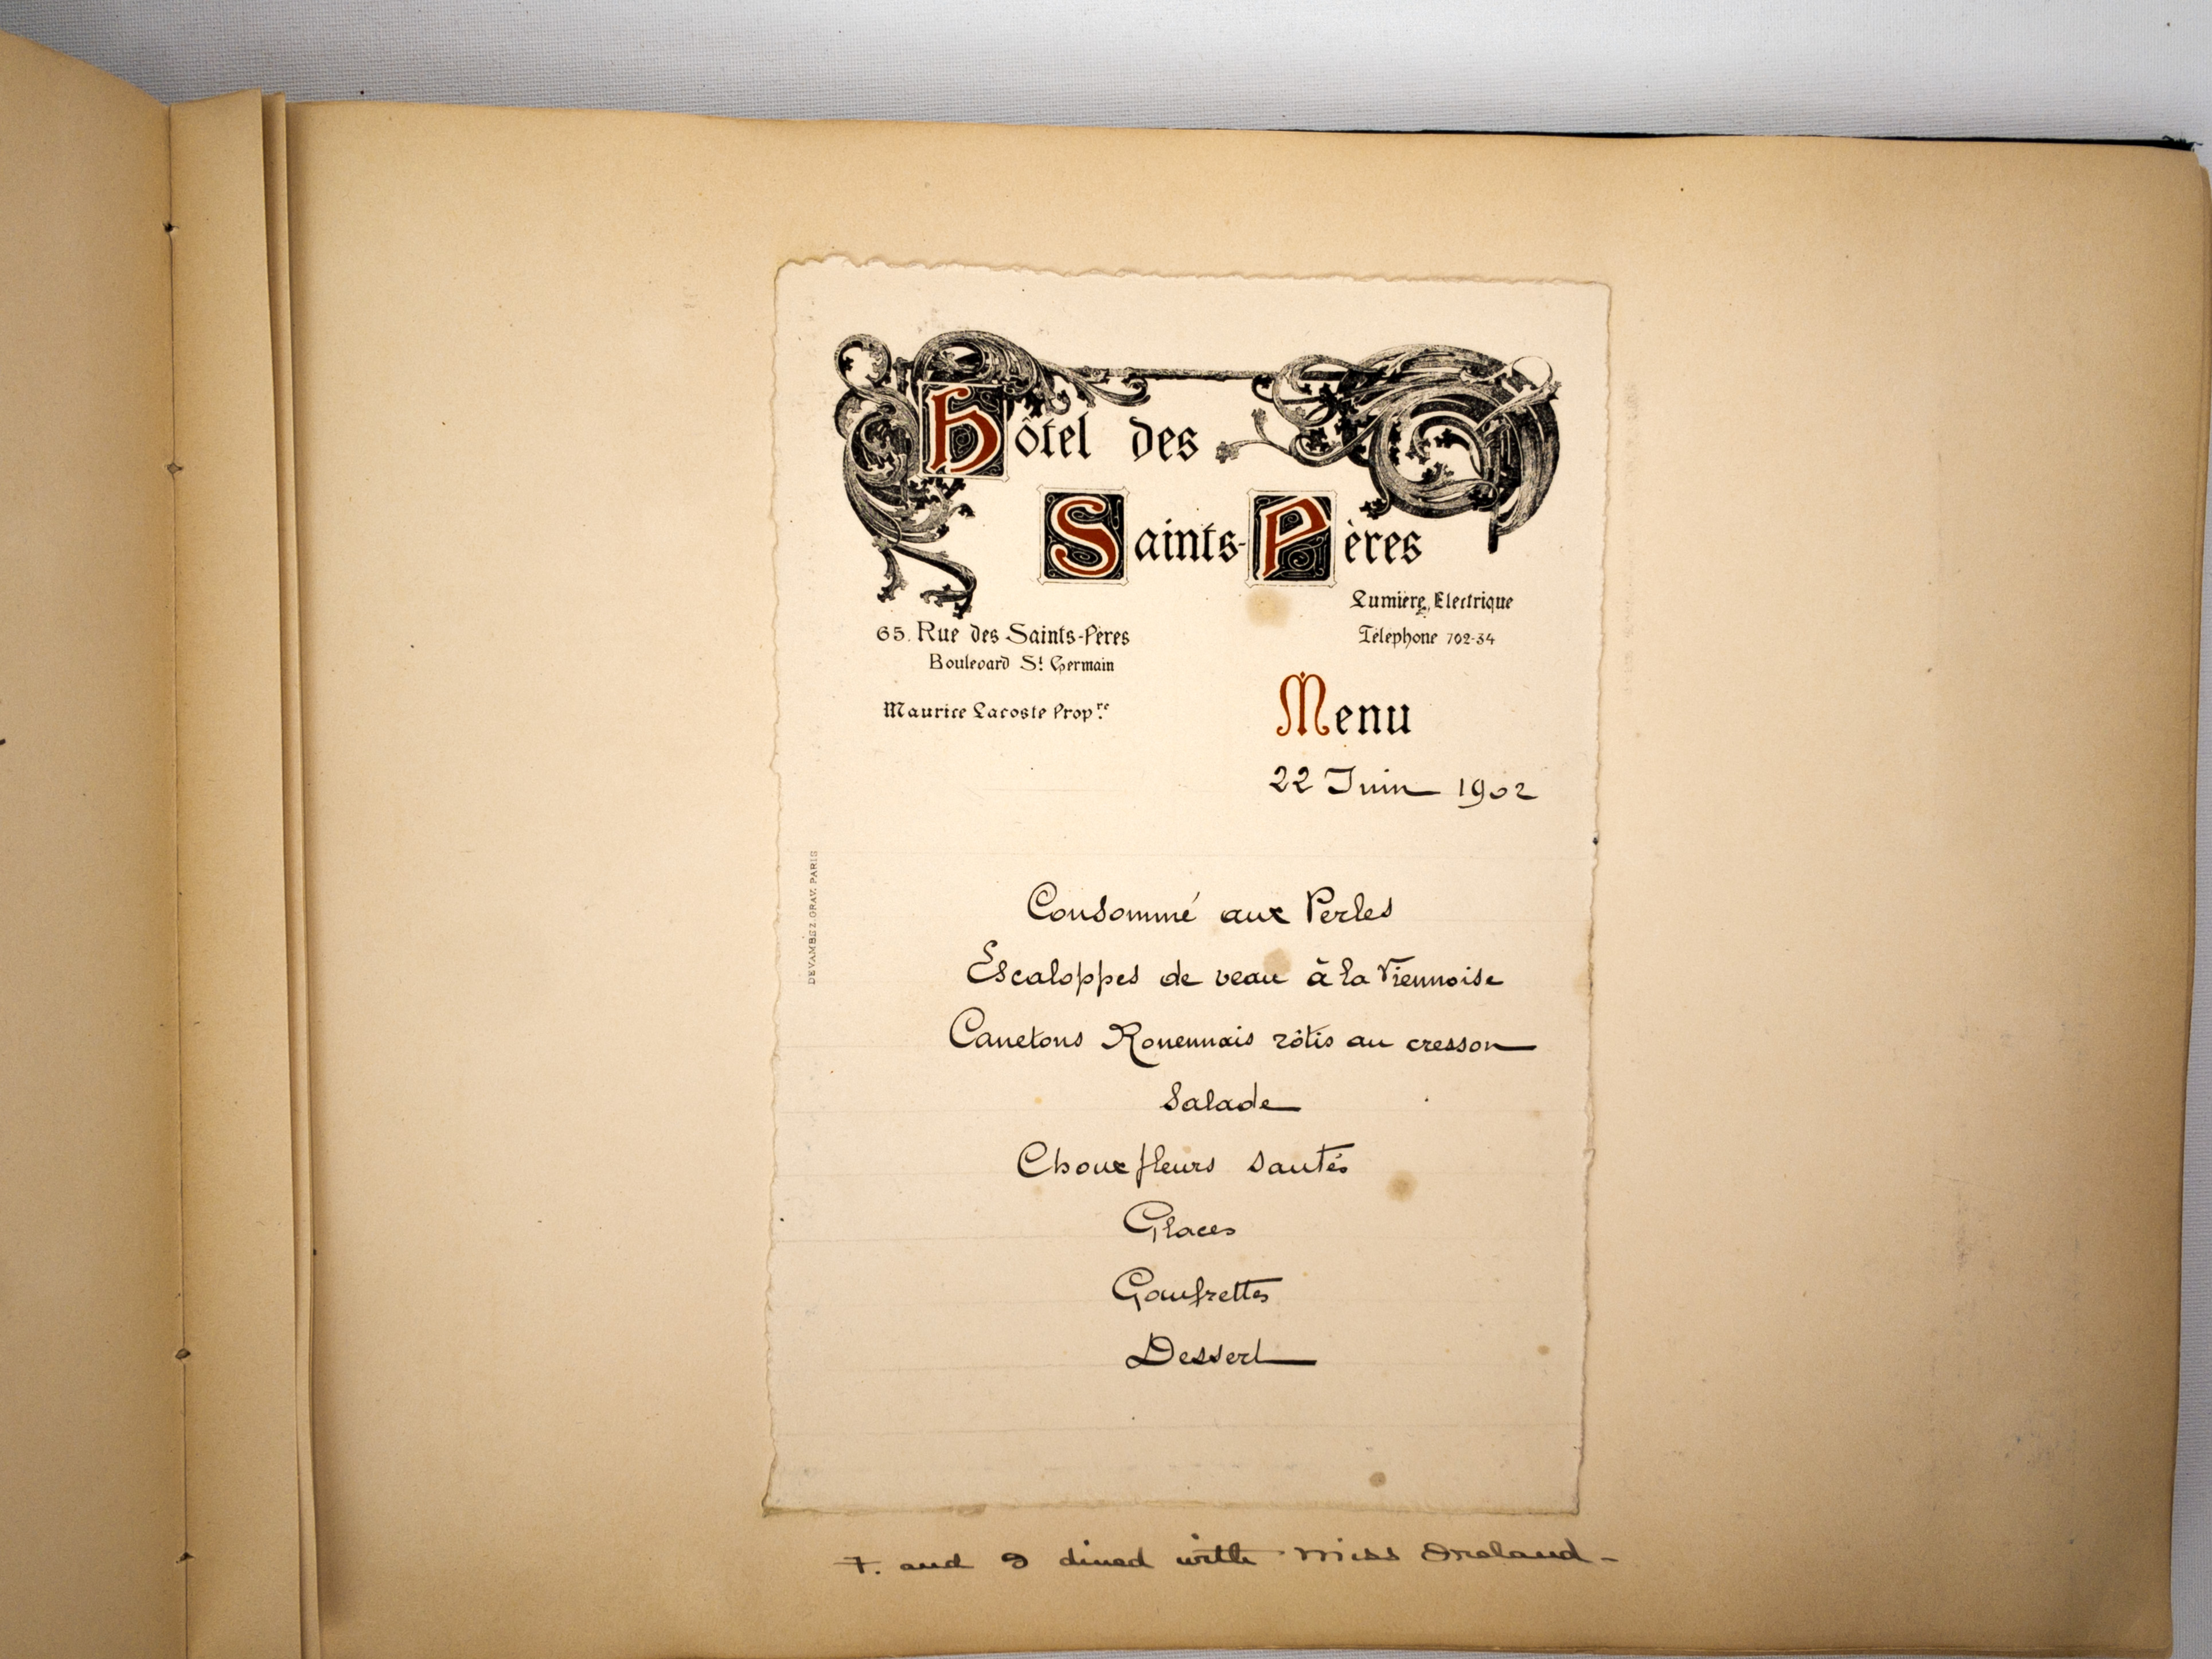 Hôtel des
Saints-Pères
Lumière Electrique
65. Rue des Saints-Pères
Téléphone 702-34
Boulevard St Germain
Maurice Lacoste Propre.
Menu
22 Juin 1902
DEVAMBEZ. GRAV. PARIS
Consommé aux Perles
Escaloppes de veau à la Viennoise
Canetons Rouennais rôtis au cresson
Salade
Choux fleurs sautés
Glaces
Gaufrettes
Dessert
F. and I dined with Miss Ireland -